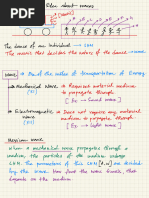 about waves
The dance of an individual → SHM
The waves that decides the nature of the dance → wave
Wave → One of the modes of transportation of Energy
→ Mechanical Wave → Requires material medium
to propagate through
[Ex → Sound wave]
→ Electromagnetic Wave → Does not require any material
medium to propagate through
[Ex → Light wave]
Medium wave
When a mechanical wave propagates through a
medium, the particles of the medium undergo
SHM. The parameters of this SHM are decided
by the wave
depends on the medium